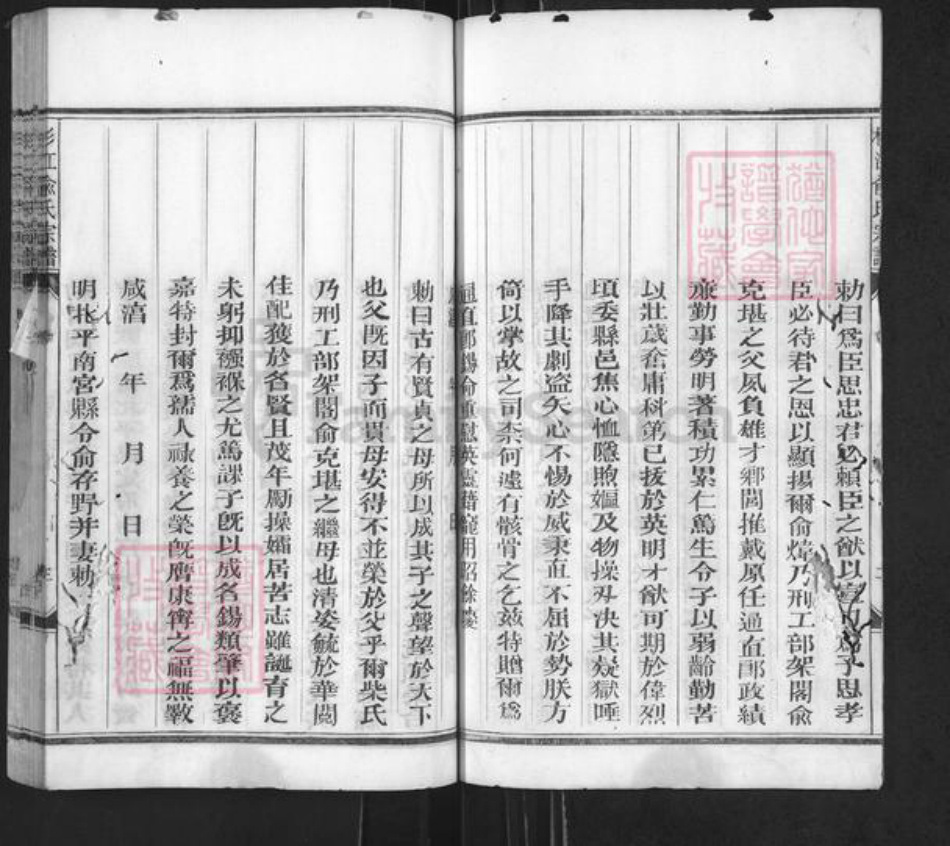 勅曰爲臣思忠君必賴臣之猷以
子思孝
臣必待君之恩以顯揚爾俞煒乃刑工部架閣俞
克堪之父夙負雄才鄉閭推戴原任通直郎政績
旅勤事勞明著積功累仁篤生令子以弱齡勤苦
以壯歲奮庸科第已拔於英明才猷可期於偉烈
頃委縣邑焦心恤隱煦嫗及物操刃决其疑獄唾
手降其劇盜矢心不惕於威秉直不屈於勢朕方
倚以掌故之司柰何遽有骸骨之乞兹特贈爾爲
通直郎錫命
慰英靈藉寵用昭餘慶
勅曰古有賢貞之母所以成其子之聲望於天下
也父旣因子而貴母安得不並榮於父乎爾柴氏
乃刑工部架閣俞克堪之繼母也清姿毓於華閥
佳配獲於名賢且茂年勵操孀居苦志雖誕育之
未躬抑襁褓之尤篤課子旣以成名錫類肇以褒
嘉特封爾爲孺人祿養之榮旣膺康寧之福無斁
咸淳 年 月 日
明北平南宮縣令俞存野并妻勅
杉江俞氏宗譜